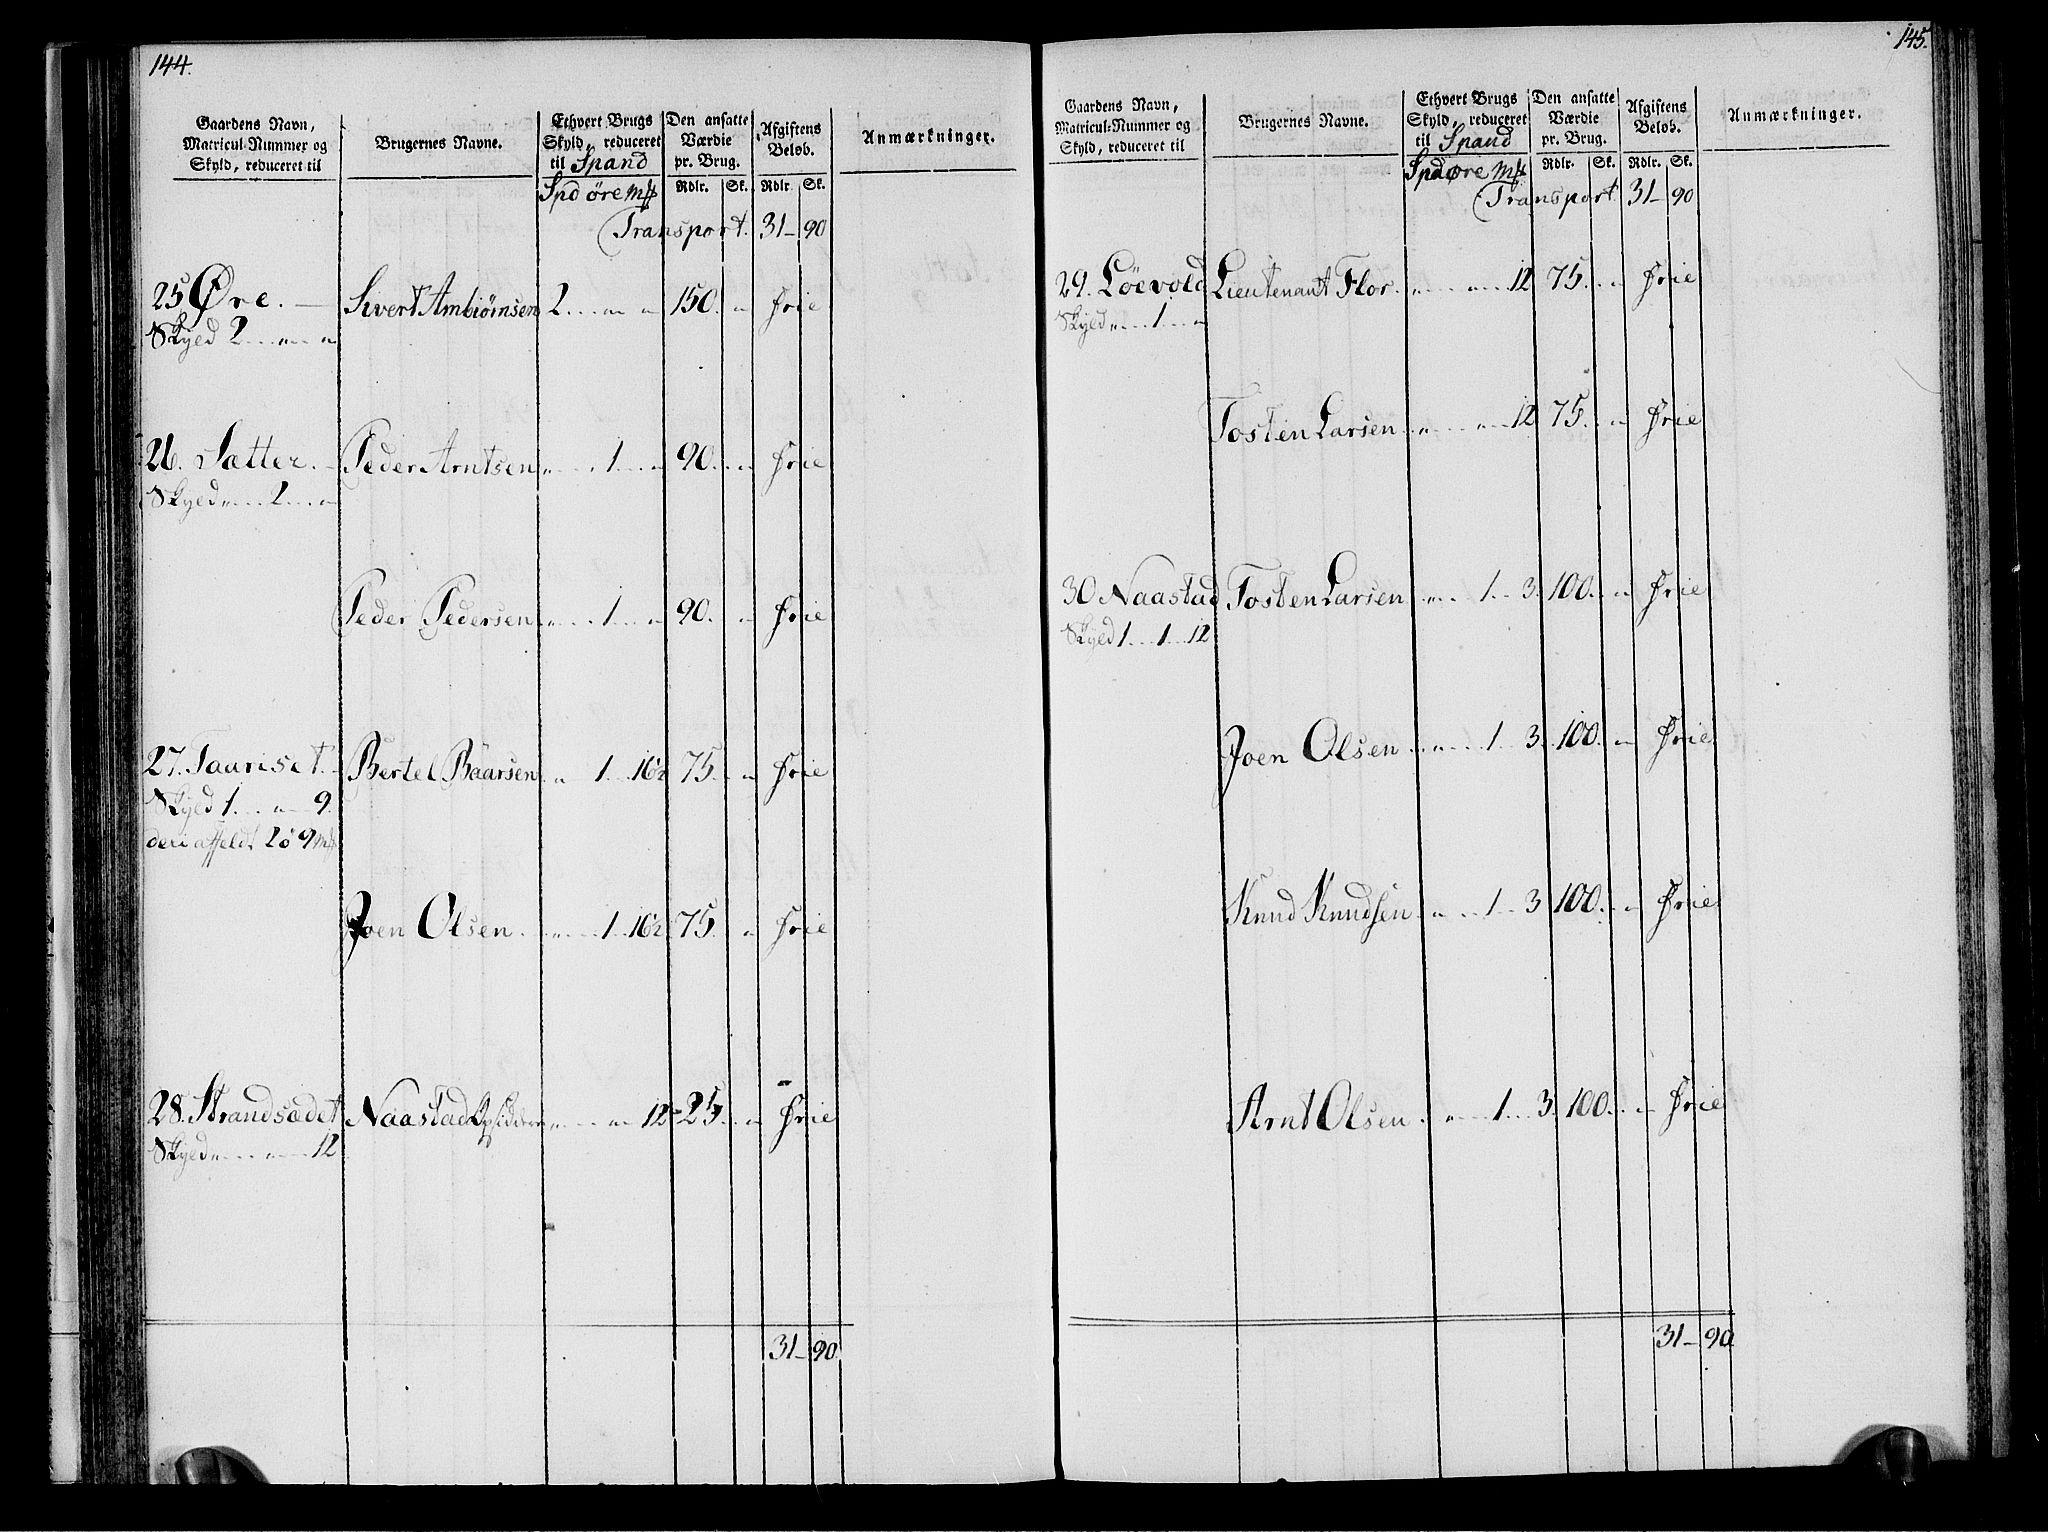 144.
Gaardens Navn, Matricul-Nummer og Skyld, reduceret til
Brugernes Navne.
Ethvert Brugs Skyld, reduceret til Spand
Den ansatte Værdie pr. Brug.
Afgiftens Beløb.
Anmærkninger.
Spd øre mk
Rdlr. Sk. Rdlr. Sk.
Transport. 31 - 90
25 Øre. Sivert Ambiørnsen 2 . . . " . . . " 150. " frie
Skyld 2 . . . " . . . "
26. Sætter. Peder Arntsen " . . . 1 . . . " 90. . " frie
Skyld " . . . 2 . . . "
Peder Pedersen " . . . 1 . . . " 90. " frie
27. Tauriset. Bertel Baarsen " 1 16½ 75. " frie
Skyld 1 . . . " . . . 9.
deri affeldt 2ö 9mk
Joen Olsen. " . . . 1 . . 16½ 75. " frie
28. Strandsædet Naastad Opsiddere " . . . " 12 - 25. . " frie
Skyld " . . . " . . . 12
31 - 90.
145.
Gaardens Navn, Matricul-Nummer og Skyld, reduceret til
Brugernes Navne.
Ethvert Brugs Skyld, reduceret til Spand
Den ansatte Værdie pr. Brug.
Afgiftens Beløb.
Anmærkninger.
Spd øre mk
Rdlr. Sk. Rdlr. Sk.
Transport. 31 - 90
29. Löevold Lieutenant Flor. " . . . " . . 12 75. . " frie
Skyld " . . . 1 . . . "
Tosten Larsen " . . . " . . 12 75. . " frie
30 Naastad Tosten Larsen " . . . 1 . . 3. 100. . " frie
Skyld 1 . . . 1 . . . 12
Joen Olsen " . . . 1 . . 3. 100. . " frie
Knud Knudsen " . . . 1 . . 3 100. . " frie
Arnt Olsen. " . . . 1 . . . 3. 100. . " frie
31 - 90